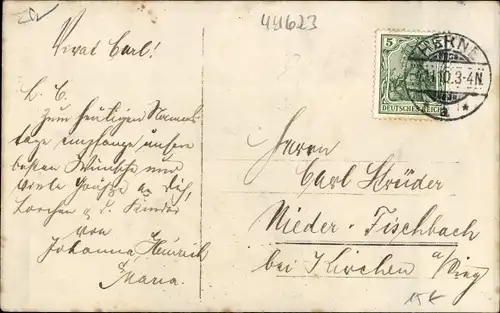 44623
Vivat Carl!
L. C.
Zum heutigen Namens
tage empfange unsere
besten Wünsche und
viele Grüße an Dich,
Lorchen u. d. Kinder
von
Johanna, Heinrich
Maria.
5
DEUTSCHES REICH
HERNE
10.3-4N.
a
Herrn
Carl Strüder
Nieder-Fischbach
bei Kirchen a/Sieg
15K